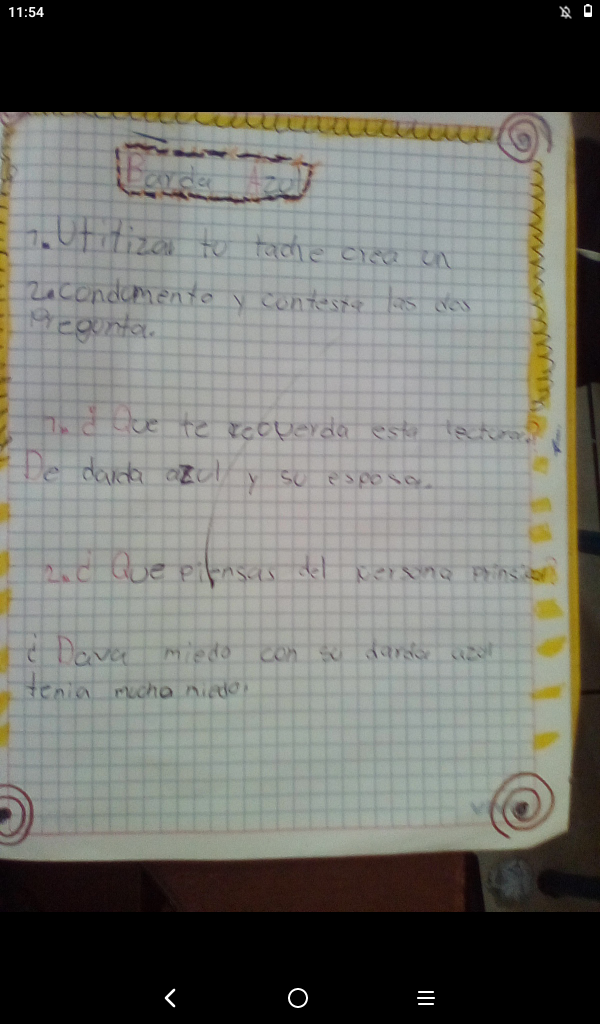 11:54
Barda Azul
1. Utitizar to tache crea un
2. condomento y contesta las dos
Pregunta.
1. ¿ Que te recuerda esta lectura?
De darda azul y su esposa.
2. ¿ Que piensas del persona prinsipar?
¿ Dava miedo con su darda azul
tenia mucha niedo.